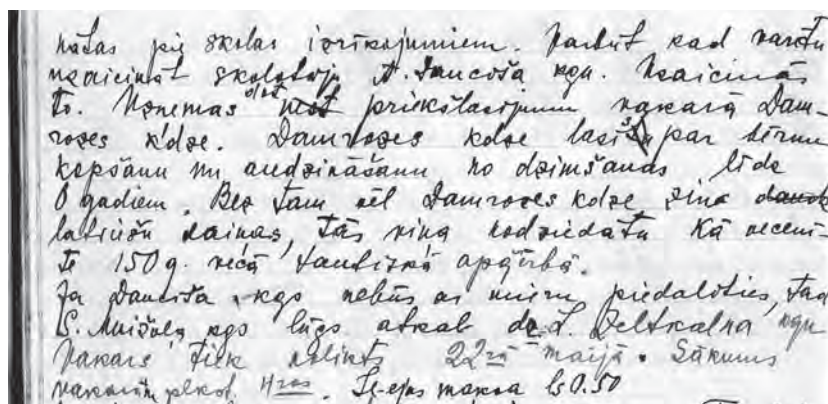 pie skolas izrīkojumiem. Varbūt kad varētu
uzaicināt skolotāju A. Dauciša kgu. Uzaicinās
to. Uzņemas priekšlasījumu vakarā Dam-
rozes kdze. Damrozes kdze lasīs par bērnu
kopšanu un audzināšanu no dzimšanas līdz
6 gadiem. Bez tam vēl Damrozes kdze zina
latviešu dainas, tās viņa nodziedātu kā vecenī-
te 150 g. vecā tautiskā apģērbā.
Ja Dauciša kgs nebūs ar mieru piedalīties, tad
S. kgs lūgs atkal L. Veltkalna kgu
Vakars tiek nolikts 22rā maijā. Sākums
vakarām plkst. Ie-ejas maksa ls 0.50